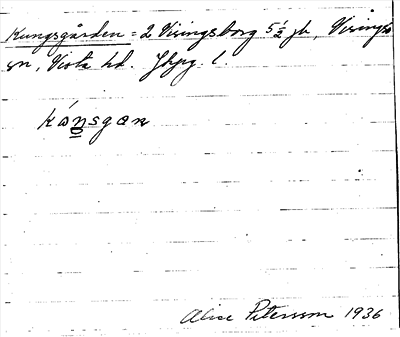 Kungsgården = 2 Visingsborg 5 1/2 jb, Visingsö
sn, Vista hd. Jkpg. l.
kóṉsgaꞛn
Alice Petersson 1936